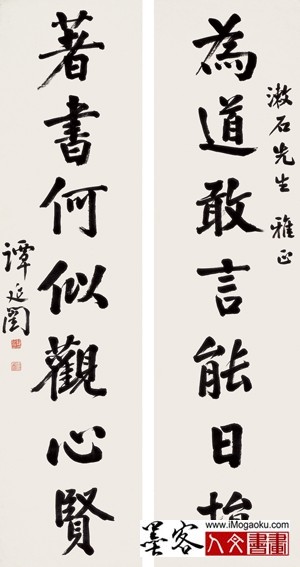 漱石先生 雅正
為道敢言能日
著書何似觀心賢
譚延闓
墨客
www.iMogaoku.com
人文書畫